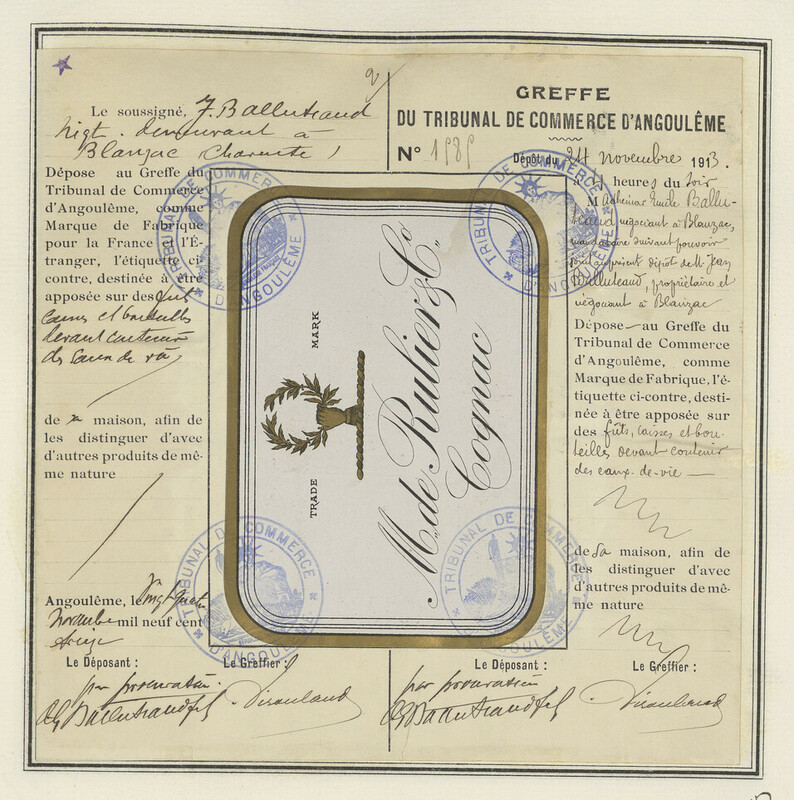 Le soussigné, J. Balluteaud
négt. demeurant à
Blanzac Charente
Dépose au Greffe du
Tribunal de Commerce
d'Angoulême, comme
Marque de Fabrique
pour la France et l'É-
tranger, l'étiquette ci-
contre, destinée à être
apposée sur des fut
caisses et bouteilles
devant contenir
des eaux de vie
de sa maison, afin de
les distinguer d'avec
d'autres produits de mê-
me nature
Angoulême, le vingt quatre
Novembre mil neuf cent
treize
Le Déposant :
Le Greffier :
par procuration
GREFFE
DU TRIBUNAL DE COMMERCE D'ANGOULÊME
N° 1989
Dépôt du 24 novembre 1913.
heures du soir
M Adhémar Emile Ballu-
teaud négociant à Blanzac,
mandataire suivant pouvoir
dépôt de M. Jean
Balluteaud, propriétaire et
négociant à Blanzac
Dépose au Greffe du
Tribunal de Commerce
d'Angoulême, comme
Marque de Fabrique, l'é-
tiquette ci-contre, desti-
née à être apposée sur
des fûts, caisses et bou-
teilles devant contenir
des eaux-de-vie
de sa maison, afin de
les distinguer d'avec
d'autres produits de mê-
me nature
Le Déposant :
Le Greffier :
par procuration
TRADE MARK
M. de Rulier & Co.
Cognac
TRIBUNAL DE COMMERCE
D'ANGOULÊME
TRIBUNAL DE COMMERCE
D'ANGOULÊME
TRIBUNAL DE COMMERCE
D'ANGOULÊME
TRIBUNAL DE COMMERCE
D'ANGOULÊME